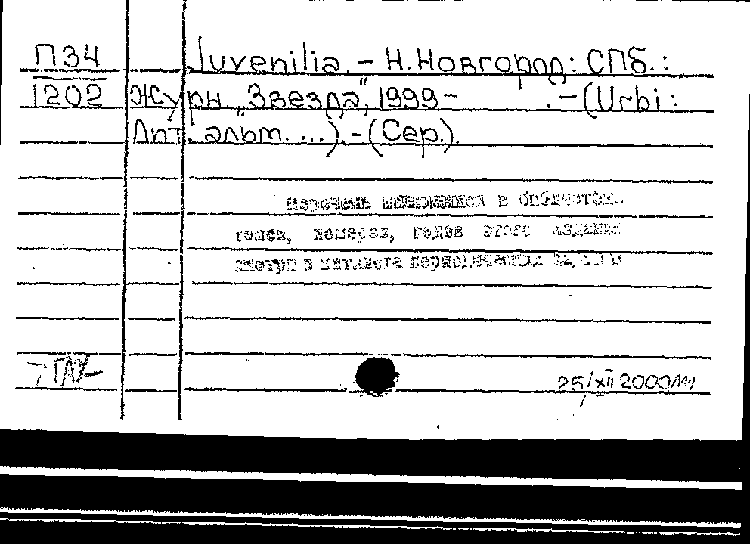 П34 Juvenilia. – Н.Новгород: СПб.:
1202 Журн. „Звезда", 1999– . – (Urbi:
Лит. альм. ...). – (Сер.).
Перечень имеющихся в библиотеке
томов, номеров, годов этого издания
смотри в каталоге периодических изданий
25/XII 2000